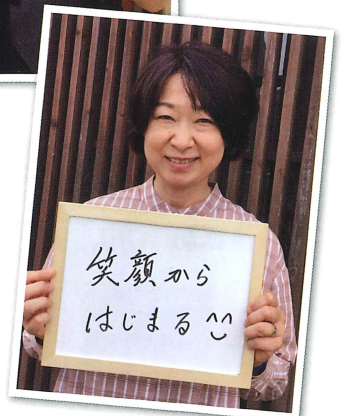 笑顔から
はじまる ^^